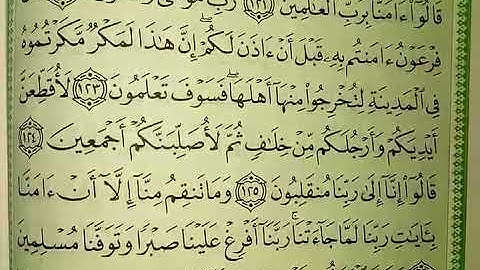 قَالُوٓا۟ ءَامَنَّا بِرَبِّ ٱلْعَٰلَمِينَ ١٢١ رَبِّ
فِرْعَوْنُ ءَامَنتُم بِهِۦ قَبْلَ أَنْ ءَاذَنَ لَكُمْ ۖ إِنَّ هَٰذَا لَمَكْرٌ مَّكَرْتُمُوهُ
فِى ٱلْمَدِينَةِ لِتُخْرِجُوا۟ مِنْهَآ أَهْلَهَا ۖ فَسَوْفَ تَعْلَمُونَ ١٢٣ لَأُقَطِّعَنَّ
أَيْدِيَكُمْ وَأَرْجُلَكُم مِّنْ خِلَٰفٍ ثُمَّ لَأُصَلِّبَنَّكُمْ أَجْمَعِينَ ١٢٤
قَالُوٓا۟ إِنَّآ إِلَىٰ رَبِّنَا مُنقَلِبُونَ ١٢٥ وَمَا تَنقِمُ مِنَّآ إِلَّآ أَنْ ءَامَنَّا
بِـَٔايَٰتِ رَبِّنَا لَمَّا جَآءَتْنَا ۚ رَبَّنَآ أَفْرِغْ عَلَيْنَا صَبْرًا وَتَوَفَّنَا مُسْلِمِينَ